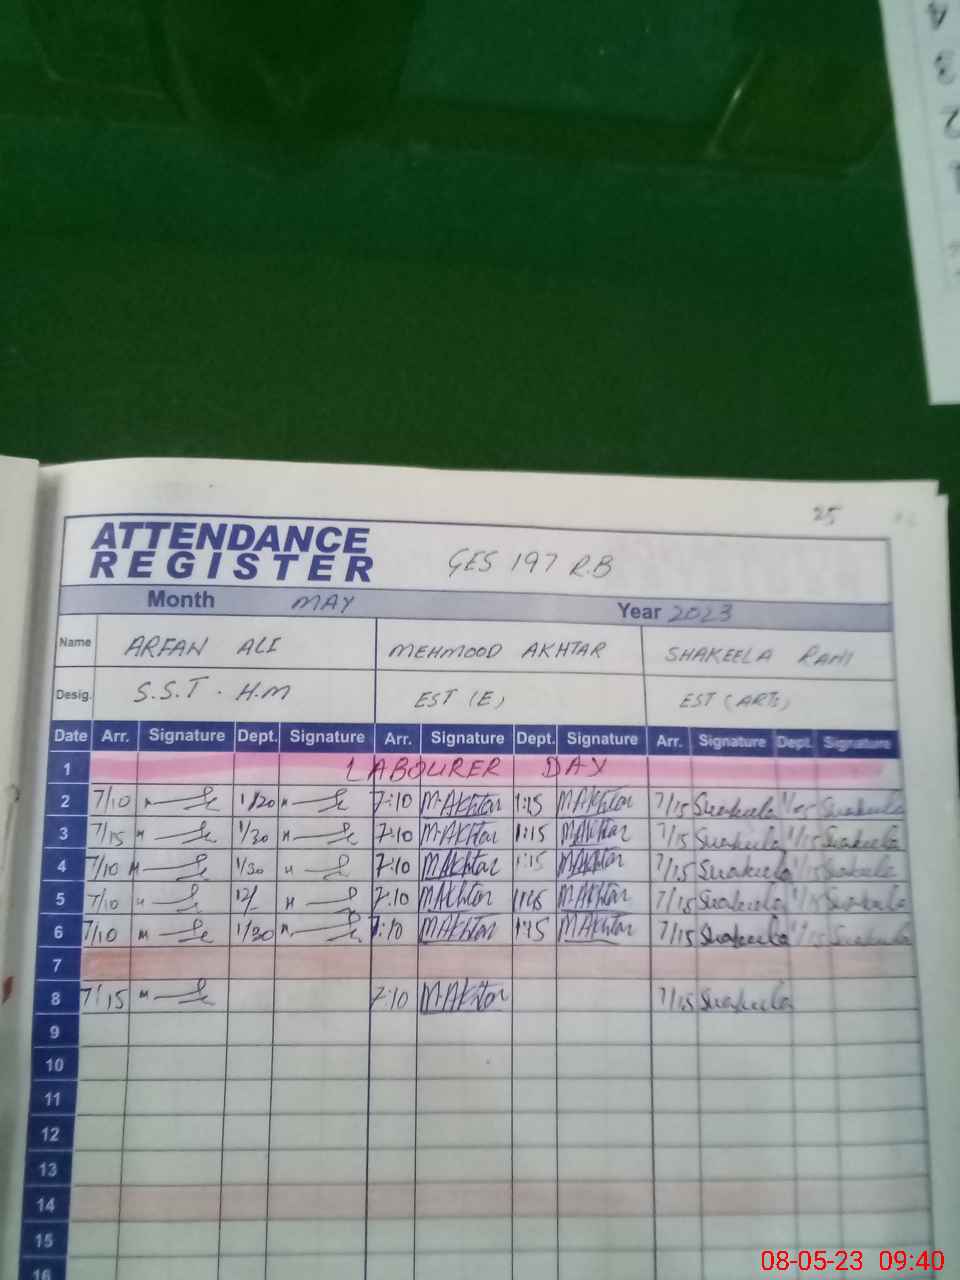 4
3
2
1
25
ATTENDANCE
REGISTER
GES 197 R.B
Month MAY Year 2023
Name ARFAN ALI MEHMOOD AKHTAR SHAKEELA RANI
Desig. S.S.T. H.M EST (E) EST (ARTS)
Date Arr. Signature Dept. Signature Arr. Signature Dept. Signature Arr. Signature Dept. Signature
1 LABOURER DAY
2 7/10 1/20 7:10 M.Akhtar 1:15 MAkhtar 7/15 Shakeela Shakeela
3 7/15 1/30 7:10 M.Akhtar 1:15 MAkhtar 7/15 Shakeela 1/15 Shakeela
4 7/10 1/30 7:10 MAkhtar 1:15 MAkhtar 7/15 Shakeela 1/15 Shakeela
5 7/10 12/ 7:10 MAkhtar 1:15 MAkhtar 7/15 Shakeela 1/15 Shakeela
6 7/10 1/30 7:10 MAkhtar 1:15 MAkhtar 7/15 Shakeela 1/15 Shakeela
7
8 7/15 7:10 M.Akhtar 7/15 Shakeela
9
10
11
12
13
14
15
16
08-05-23 09:40